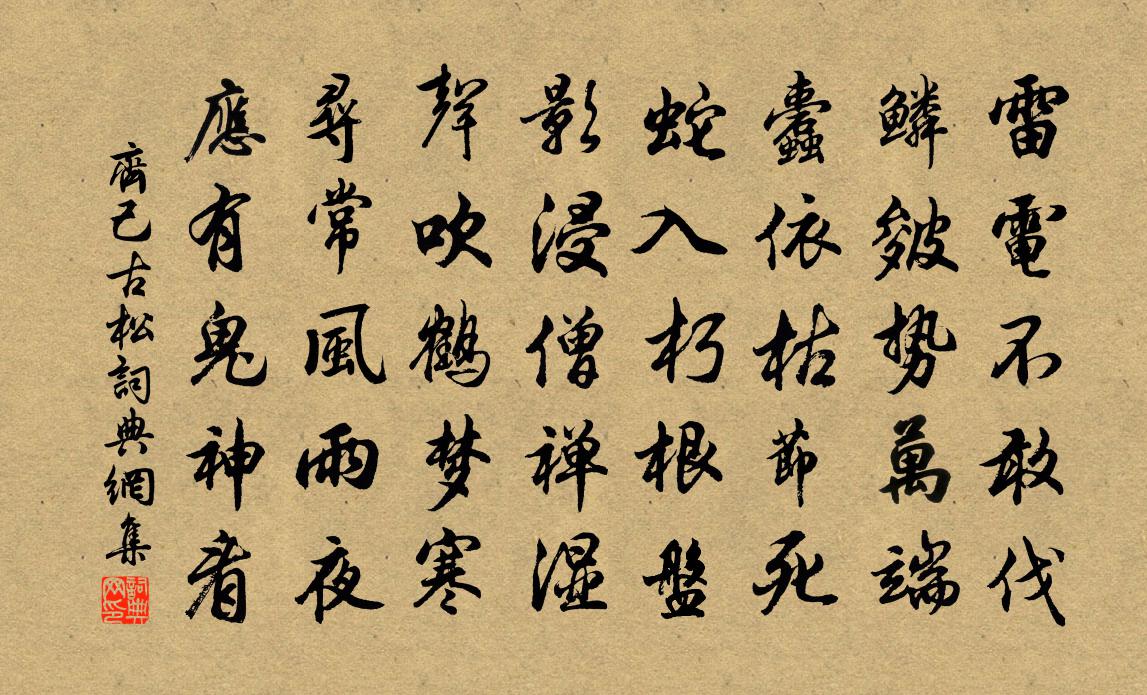 雷電不敢伐
鱗皴勢萬端
蠹依枯節死
蛇入朽根盤
影浸僧禅濕
聲吹鶴梦寒
尋常風雨夜
應有鬼神看
齊己古松詞典網集